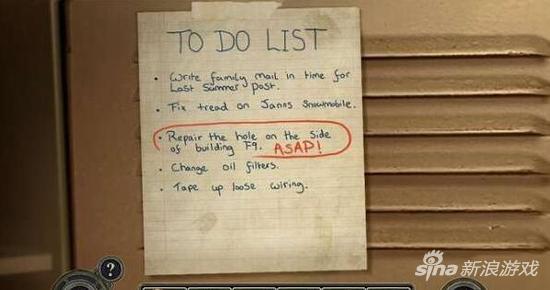 TO DO LIST
• Write family mail in time for
Last Summer post.
• Fix tread on Janns Snowmobile.
• Repair the hole on the side
of building F9. ASAP!
• Change oil filters.
• Tape up loose wiring.
?
sina 新浪游戏